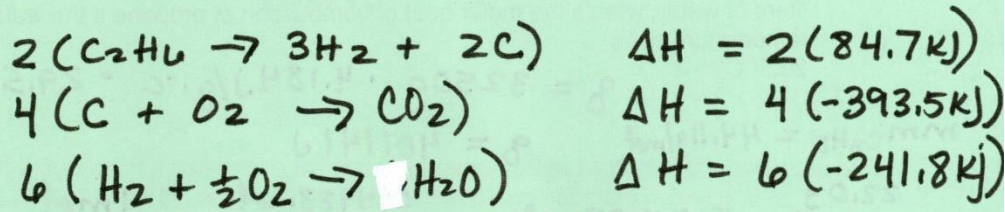 2 (C2H6 → 3H2 + 2C) ΔH = 2(84.7kJ)
4 (C + O2 → CO2) ΔH = 4(-393.5kJ)
6 (H2 + ½O2 → H2O) ΔH = 6(-241.8kj)